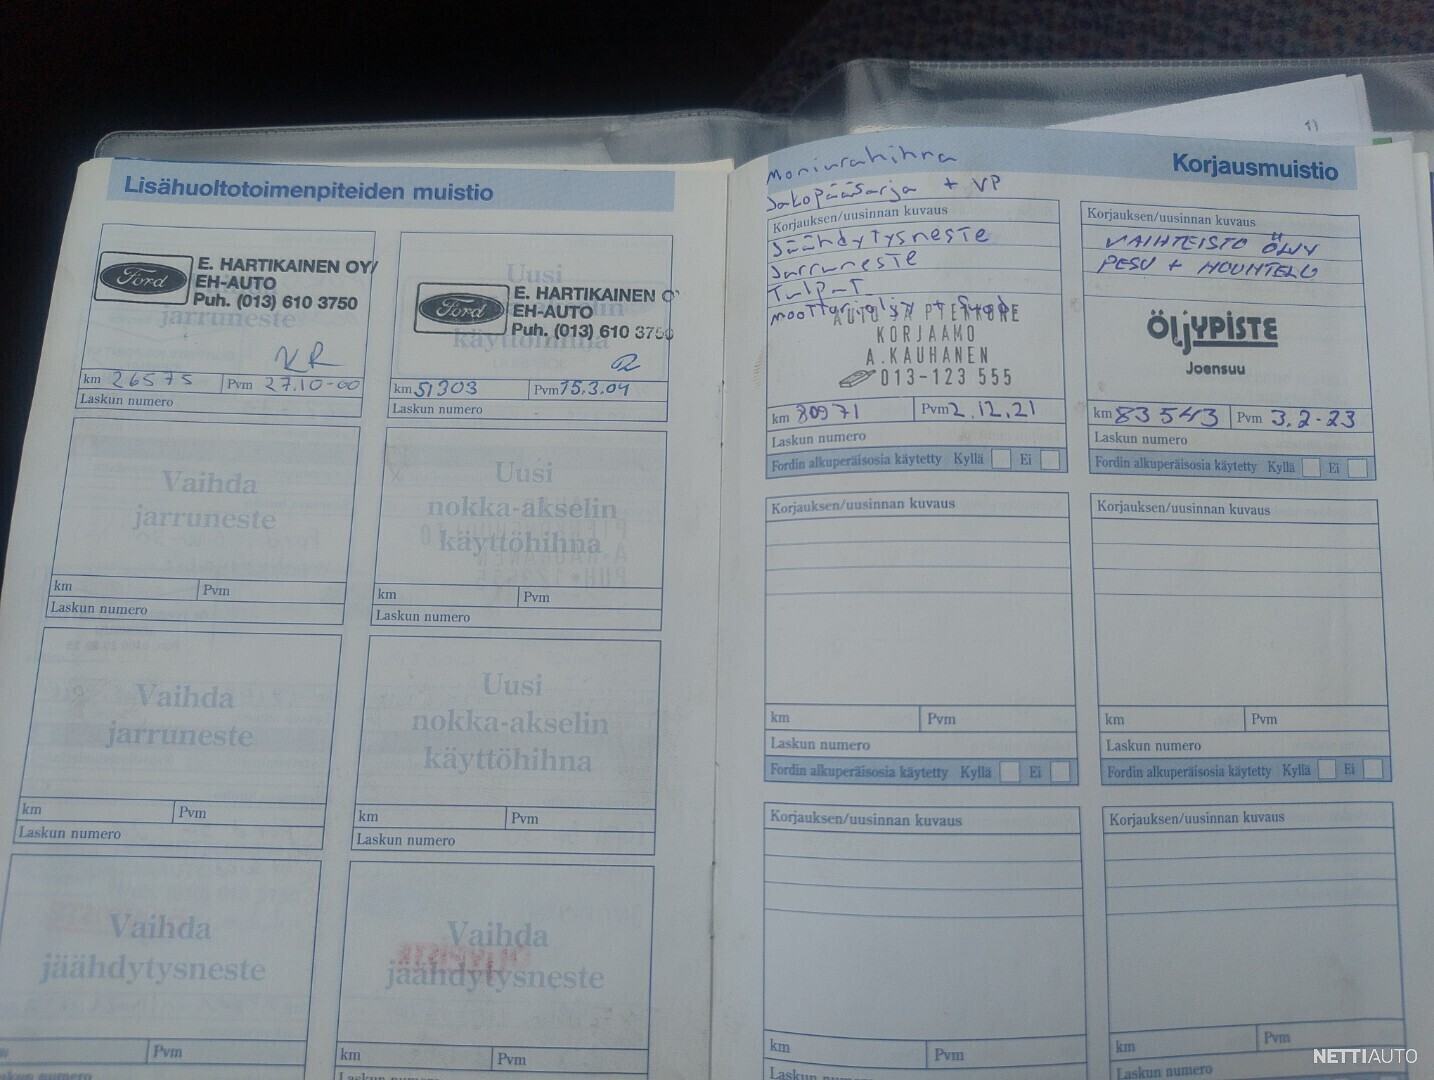 Lisähuoltotoimenpiteiden muistio
Ford
E. HARTIKAINEN OY/
EH-AUTO
Puh. (013) 610 3750
jarruneste
km 26575 Pvm 27.10-00
Laskun numero
Uusi
Ford
E. HARTIKAINEN O
EH-AUTO
Puh. (013) 610 3750
käyttöhihna
km 51303 Pvm 15.3.04
Laskun numero
Vaihda
jarruneste
km Pvm
Laskun numero
Uusi
nokka-akselin
käyttöhihna
km Pvm
Laskun numero
Vaihda
jarruneste
km Pvm
Laskun numero
Uusi
nokka-akselin
käyttöhihna
km Pvm
Laskun numero
Vaihda
jäähdytysneste
Pvm
Vaihda
jäähdytysneste
ÖLJYPISTE
km Pvm
Laskun numero
Korjausmuistio
Moniurahihna
Jakopääsarja + VP
Korjauksen/uusinnan kuvaus
Jäähdytysneste
Jarruneste
Tulpat
KORJAAMO
A.KAUHANEN
013-123 555
km 80971 Pvm 2.12.21
Laskun numero
Fordin alkuperäisosia käytetty Kyllä Ei
Korjauksen/uusinnan kuvaus
VAIHTEISTO ÖLJY
PESU + HUUHTELU
ÖLJYPISTE
Joensuu
km 83543 Pvm 3.2-23
Laskun numero
Fordin alkuperäisosia käytetty Kyllä Ei
Korjauksen/uusinnan kuvaus
km Pvm
Laskun numero
Fordin alkuperäisosia käytetty Kyllä Ei
Korjauksen/uusinnan kuvaus
km Pvm
Laskun numero
Fordin alkuperäisosia käytetty Kyllä Ei
Korjauksen/uusinnan kuvaus
km Pvm
Laskun numero
Korjauksen/uusinnan kuvaus
km Pvm
Laskun numero
NETTIAUTO